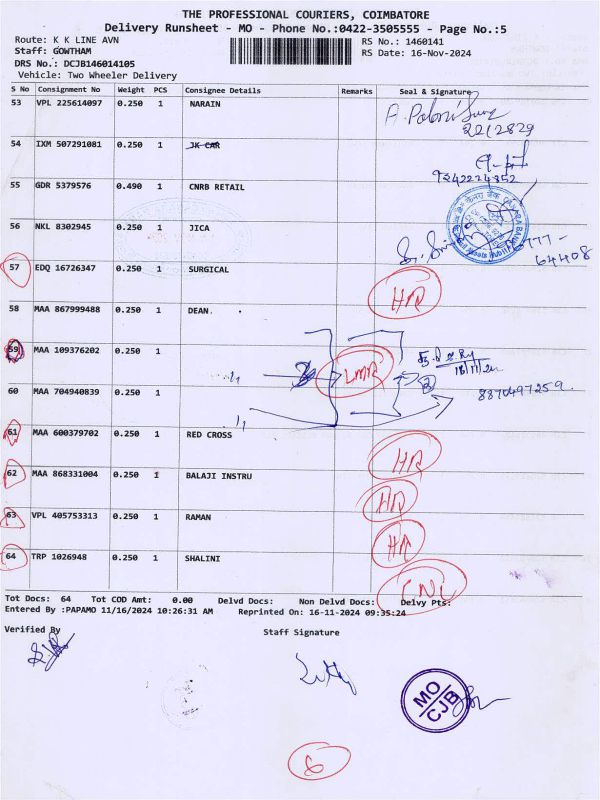 THE PROFESSIONAL COURIERS, COIMBATORE
Delivery Runsheet - MO - Phone No.:0422-3505555 - Page No.:5
Route: K K LINE AVN
RS No.: 1460141
Staff: GOWTHAM
RS Date: 16-Nov-2024
DRS No.: DCJB146014105
Vehicle: Two Wheeler Delivery
S No Consignment No Weight PCS Consignee Details Remarks Seal & Signature
53 VPL 225614097 0.250 1 NARAIN
2212829
54 IXM 507291081 0.250 1 JK CAR
9242224852
55 GDR 5379576 0.490 1 CNRB RETAIL
56 NKL 8302945 0.250 1 JICA
64408
57 EDQ 16726347 0.250 1 SURGICAL
58 MAA 867999488 0.250 1 DEAN.
59 MAA 109376202 0.250 1
18/11/24
60 MAA 704940839 0.250 1 8870497259
61 MAA 600379702 0.250 1 RED CROSS
62 MAA 868331004 0.250 1 BALAJI INSTRU
63 VPL 405753313 0.250 1 RAMAN
64 TRP 1026948 0.250 1 SHALINI
CNL
Tot Docs: 64 Tot COD Amt: 0.00 Delvd Docs: Non Delvd Docs: Delvy Pts:
Entered By :PAPAMO 11/16/2024 10:26:31 AM Reprinted On: 16-11-2024 09:35:24
Verified By
Staff Signature
MO
CJB
6